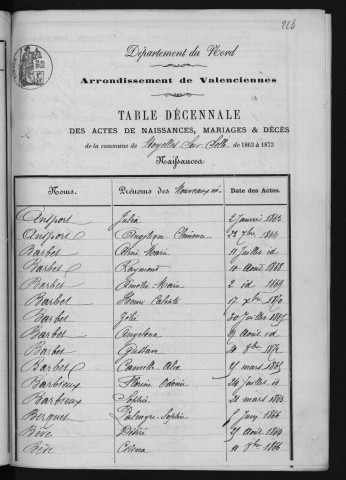 226
Département du Nord
Arrondissement de Valenciennes
TABLE DÉCENNALE
DES ACTES DE NAISSANCES, MARIAGES & DÉCÈS
de la commune de Noyelles Sur Selle de 1863 à 1873
Naissances
Noms. Prénoms des Nouveaux-nés Date des Actes.
Ansport Julia 2 Janvier 1863
Ansport Angélique Clémence 28 Xbre 1864
Barbet Aimé Marie 11 Juillet id
Barbet Raymond 10 Août 1868
Barbet Marie 2 id 1869
Barbet 17 Xbre 1870
Barbet Zoé 30 Juillet 1865
Barbet Angelina Août id
Barbet Gustave 8bre 1872
Barbieux Camille Mars 1865
Barbieux Florine 24 Juillet id
Barbieux Sophie 21 Mars 1863
Berquet Palmyre Sophie Juin 1866
Bève Désiré Août 1864
Bève 11 8bre 1866